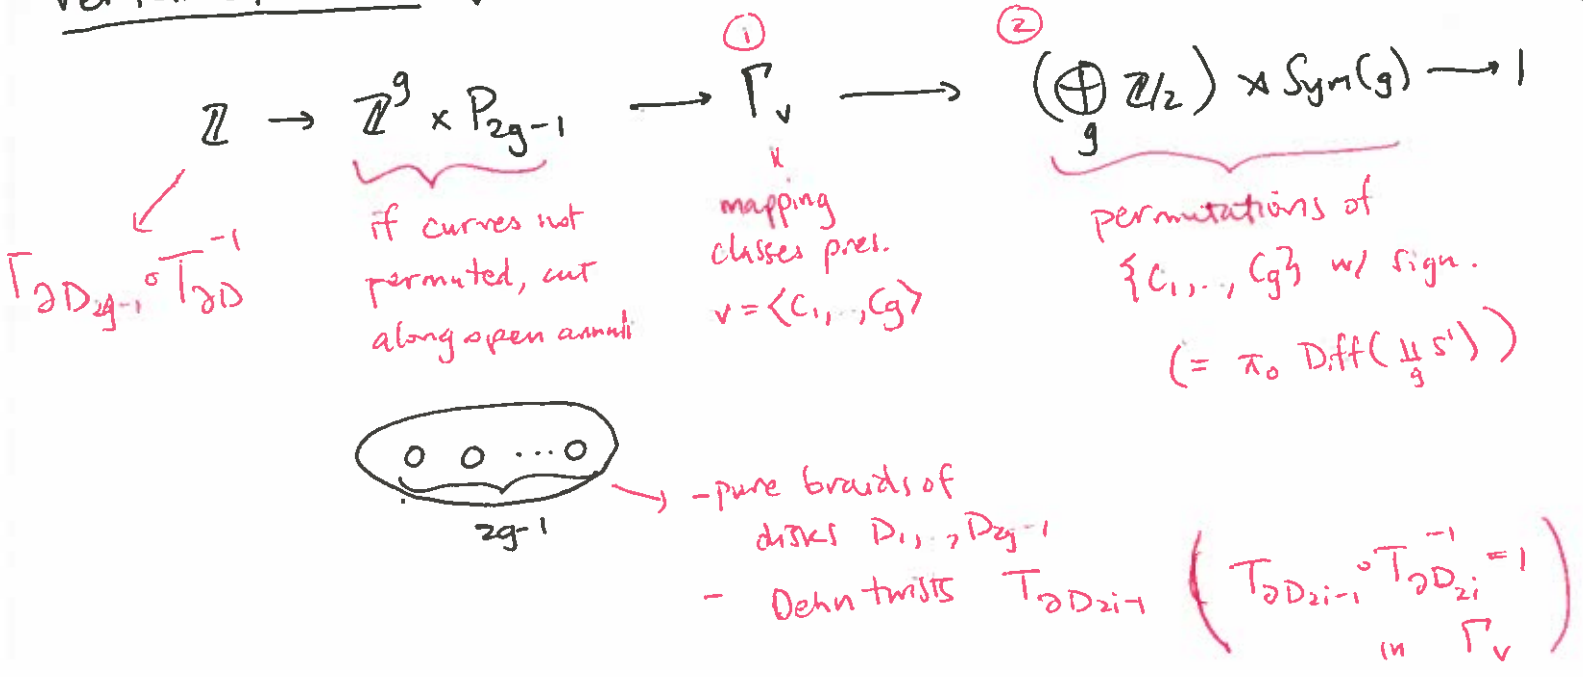 ① ②
ℤ → ℤ^g × P_{2g-1} → Γ_v → (⊕_g ℤ/2) ⋊ Sym(g) → 1
T_{∂D_{2g-1}} ∘ T_{∂D}^{-1}
if curves not
permuted, cut
along open annuli
mapping
classes pres.
v = ⟨C_1, .., C_g⟩
permutations of
{C_1, .., C_g} w/ sign.
(= π_0 Diff(⊔_g S^1))
0 0 ... 0
2g-1
- pure braids of
disks D_1, .., D_{2g-1}
- Dehn twists T_{∂D_{2i-1}} (T_{∂D_{2i-1}} ∘ T_{∂D_{2i}}^{-1} = 1
in Γ_v)